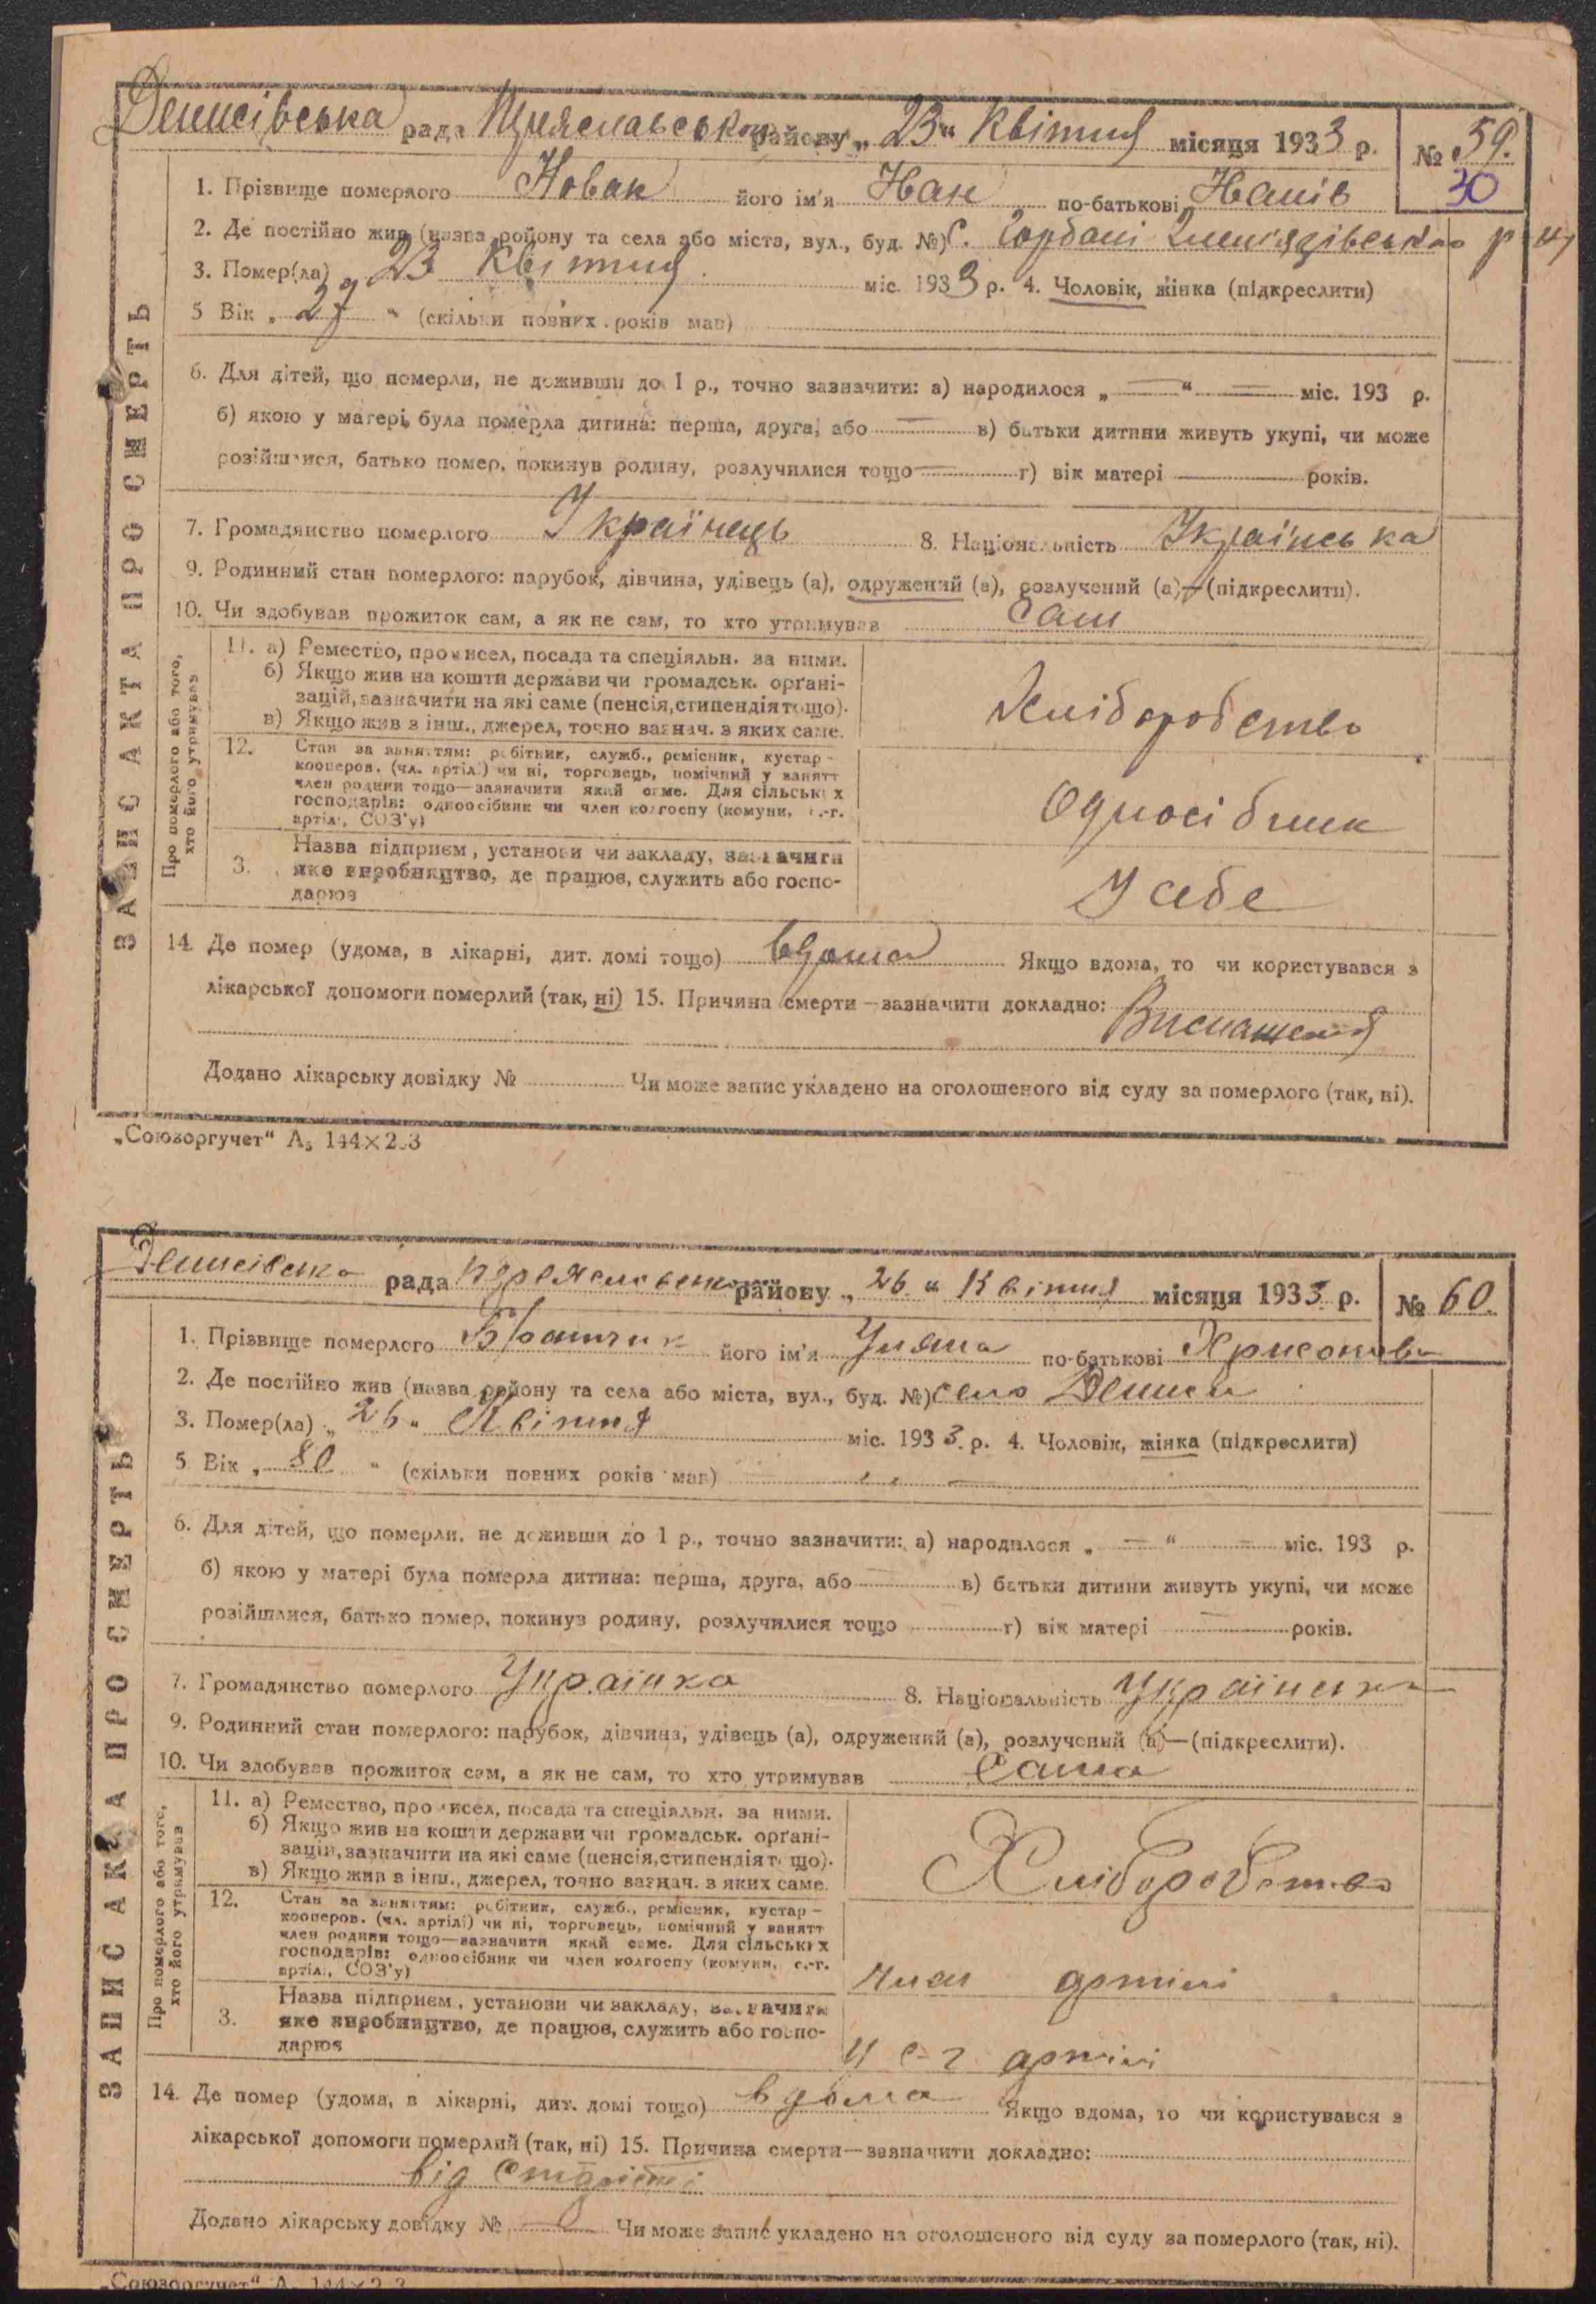 Денисівська рада району „ 23 " Квітня місяця 1933 р. № 59.
30
1. Прізвище померлого Новак його ім'я Іван по-батькові Іванів
2. Де постійно жив (назва району та села або міста, вул., буд. №) с. Горбані р-н
3. Помер(ла) „ 23 Квітня міс. 1933 р. 4. Чоловік, жінка (підкреслити)
5 Вік „ 27 " (скільки повних років мав)
6. Для дітей, що померли, не доживши до 1 р., точно зазначити: а) народилося „ — " — міс. 193 р.
б) якою у матері була померла дитина: перша, друга, або — в) батьки дитини живуть укупі, чи може
розійшлися, батько помер, покинув родину, розлучилися тощо — г) вік матері — років.
7. Громадянство померлого Українець 8. Національність Українська
9. Родинний стан померлого: парубок, дівчина, удівець (а), одружений (а), розлучений (а)—(підкреслити).
10. Чи здобував прожиток сам, а як не сам, то хто утримував Сам
ЗАПИС АКТА ПРО СМЕРТЬ
Про померлого або того, хто його утримував
11. а) Ремество, промисел, посада та спеціяльн. за ними.
б) Якщо жив на кошти держави чи громадськ. орґані-
зацій, зазначити на які саме (пенсія, стипендія тощо).
в) Якщо жив з інш., джерел, точно вазнач. з яких саме.
Хліборобство
12. Стан за заняттям: робітник, служб., ремісник, кустар-
кооперов. (чл. артілі) чи ні, торговець, помічний у занятт
член родини тощо—зазначити який саме. Для сільських
господарів: одноосібник чи член колгоспу (комуни, с.-г.
артілі, СОЗ'у)
Односібник
3. Назва підприєм., установи чи закладу, зазначити
яке виробництво, де працює, служить або госпо-
дарює
У себе
14. Де помер (удома, в лікарні, дит. домі тощо) вдома Якщо вдома, то чи користувався з
лікарської допомоги померлий (так, ні) 15. Причина смерти—зазначити докладно:
Виснаження
Додано лікарську довідку № Чи може запис укладено на оголошеного від суду за померлого (так, ні).
„Союзоргучет“ А₅ 144×203
Денисівська рада Переяславського району „ 26 " Квітня місяця 1933 р. № 60.
1. Прізвище померлого його ім'я Уляна по-батькові Хрисонова
2. Де постійно жив (назва району та села або міста, вул., буд. №) село Дениси
3. Помер(ла) „ 26 " Квітня міс. 1933. р. 4. Чоловік, жінка (підкреслити)
5. Вік „ 80 " (скільки повних років мав) —
6. Для дітей, що померли, не доживши до 1 р., точно зазначити: а) народилося „ — " — міс. 193 р.
б) якою у матері була померла дитина: перша, друга, або в) батьки дитини живуть укупі, чи може
розійшлися, батько помер, покинув родину, розлучилися тощо г) вік матері — років.
7. Громадянство померлого Українка 8. Національність Українська
9. Родинний стан померлого: парубок, дівчина, удівець (а), одружений (а), розлучений (а)—(підкреслити).
10. Чи здобував прожиток сам, а як не сам, то хто утримував Сама
ЗАПИС АКТА ПРО СМЕРТЬ
Про померлого або того, хто його утримував
11. а) Ремество, промисел, посада та спеціяльн. за ними.
б) Якщо жив на кошти держави чи громадськ. орґані-
зацій, зазначити на які саме (пенсія, стипендія тощо).
в) Якщо жив в інш., джерел, точно вазнач. з яких саме.
Хліборобство
12. Стан за заняттям: робітник, служб., ремісник, кустар-
кооперов. (чл. артілі) чи ні, торговець, помічний у занятт
член родини тощо—зазначити який саме. Для сільських
господарів: одноосібник чи член колгоспу (комуни, с.-г.
артілі, СОЗ'у)
член артілі
3. Назва підприєм., установи чи закладу, зазначити
яке виробництво, де працює, служить або госпо-
дарює
У с-г артілі
14. Де помер (удома, в лікарні, дит. домі тощо) вдома Якщо вдома, то чи користувався з
лікарської допомоги померлий (так, ні) 15. Причина смерти—зазначити докладно:
від старості
Додано лікарську довідку № — Чи може запис укладено на оголошеного від суду за померлого (так, ні).
„Союзоргучет“ А₅ 144×203